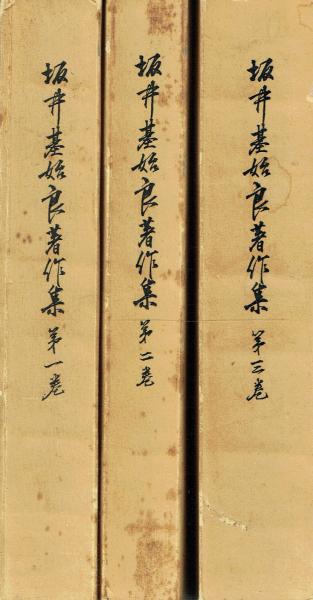 坂井基始良著作集 第一巻
坂井基始良著作集 第二巻
坂井基始良著作集 第三巻